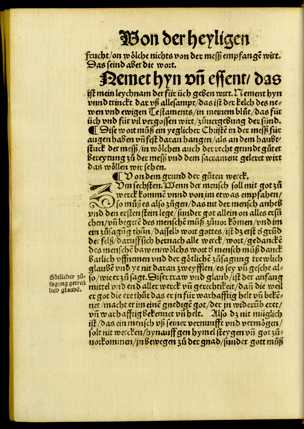 Von der heyligen
frucht/on wölche nichts von der mess empfangē wirt.
Das seind aber die wort.
Nemet hyn vñ essent/das
ist mein leychnam der für üch geben wirt. Nement hyn
vnnd trinckt dar vß allesampt/das ist der kelch des newen
vnd ewigen Testaments/in meinem blüt/das für
üch vnd für vil vergossen wirt/zü vergebung der sünd.
¶ Dise wort müß ein yeglicher Christē in der mess für
augen haben vñ fest daran hangen/als an dem haubt
stuck der mess/in wölchen auch der recht grund güter
bereytung zü der mess vnd dem sacrament geleret wirt
das wöllen wir sehen.
¶ Von dem grund der güten werck.
Zum sechsten. Wenn der mensch soll mit got zü
werck kommē vnd von im etwas empfahen/
so müß es also zügen/das nit der mensch anheb
vnd den ersten stein lege/sunder got allein on alles ersü
chen/vñ begerē des menschē müß züuor komen/vnd im
ein züsagūg thün/dasselb wort gottes/ist dz erst
der felß/daruff sich hernach alle werck/wort/gedanckē
des menschē bawen/wölche wort ð mensch müß danck
barlich vffnemen vnd der götliche züsagung trewlich
glaubē vnd ye nit daran zweyfflen/es sey vñ geschee al
so/wie er zü sagt. Diser traw vnd glaub/ist der anfang
mittel vnd end aller werck vñ gerechtikeit/dañ die weil
er got die eer thüt das er in für warhafftig helt vñ bekē
net/macht er im eine gnedigē got/der in widerūb eret/
vñ warhafftig bekennet vñ helt. Also dz nit müglich
ist/das ein mensch vß seiner vernunfft vnd vermögen/
solt mit wercken/hynuff gen hymel steygen vñ got zü
uorkommen/in bewegen zü der gnad/sunder gott müß
Götlicher zü-
sagung getruw
vnd glaubē.